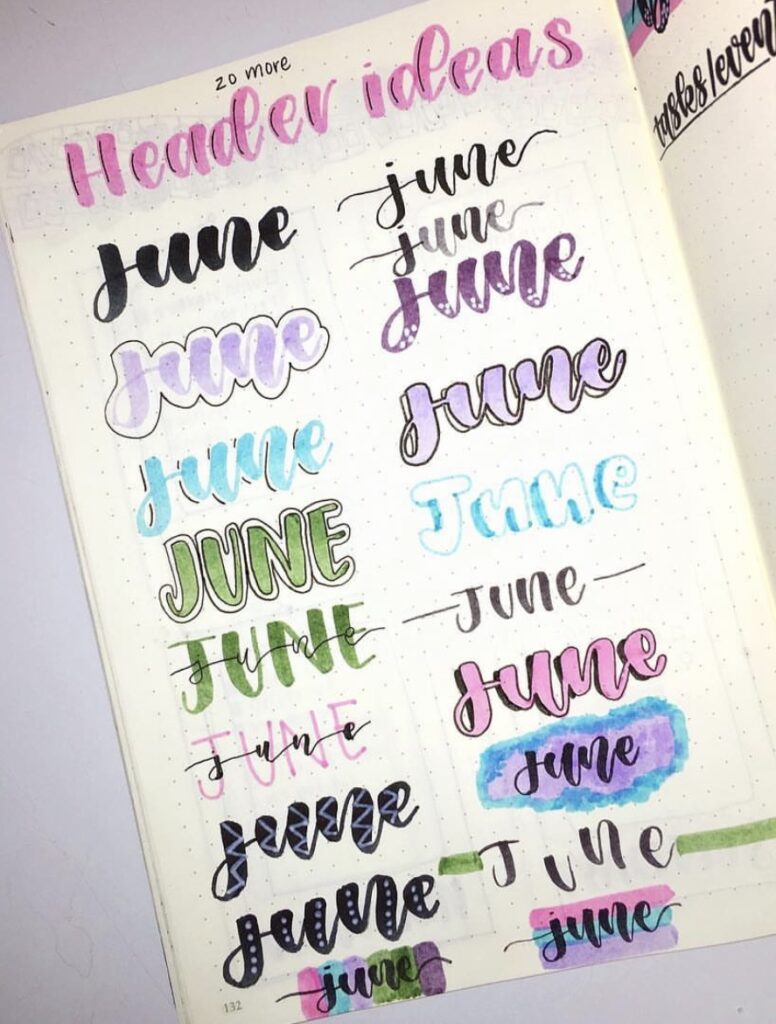 20 more
Header ideas
June
june
june
JUNE
JUNE
june
JUNE
june
june
june
june
june
june
june
june
June
— June —
june
june
JUNe
june
132
tasks/event